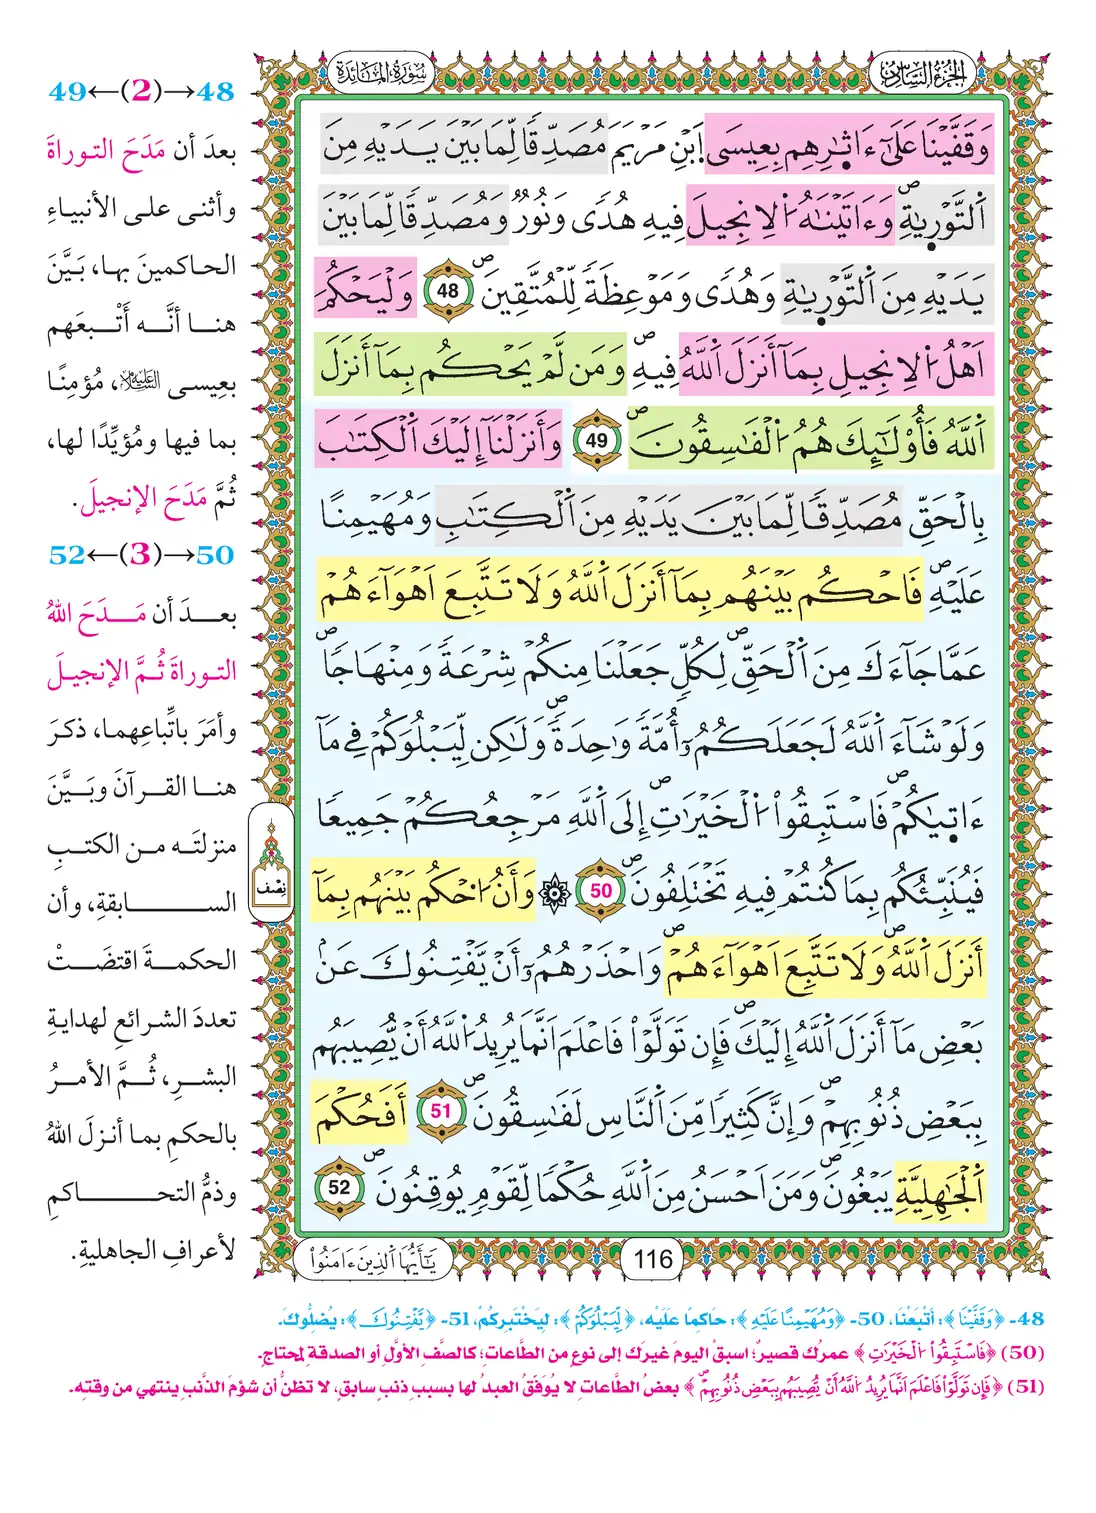 الجزء السادس
سورة المائدة
وَقَفَّيْنَا عَلَىٰٓ ءَاثٰ۪رِهِم بِعِيسَى اَبْنِ مَرْيَمَ مُصَدِّقٗا لِّمَا بَيْنَ يَدَيْهِ مِنَ
اَ۬لتَّوْر۪يٰةِۖ وَءَاتَيْنَٰهُ اُ۬لِانجِيلَ فِيهِ هُدٗى وَنُورٞ وَمُصَدِّقٗا لِّمَا بَيْنَ
يَدَيْهِ مِنَ اَ۬لتَّوْر۪يٰةِ وَهُدٗى وَمَوْعِظَةٗ لِّلْمُتَّقِينَۖ 48 وَلْيَحْكُمُ
اَهْلُ اُ۬لِانجِيلِ بِمَآ أَنزَلَ اَ۬للَّهُ فِيهِۖ وَمَن لَّمْ يَحْكُم بِمَآ أَنزَلَ
اَ۬للَّهُ فَأُوْلَٰٓئِكَ هُمُ اُ۬لْفَٰسِقُونَۖ 49 وَأَنزَلْنَآ إِلَيْكَ اَ۬لْكِتَٰبَ
بِالْحَقِّ مُصَدِّقٗا لِّمَا بَيْنَ يَدَيْهِ مِنَ اَ۬لْكِتَٰبِ وَمُهَيْمِنًا
عَلَيْهِۖ فَاحْكُم بَيْنَهُم بِمَآ أَنزَلَ اَ۬للَّهُ وَلَا تَتَّبِعَ اَهْوَآءَهُمْ
عَمَّا جَآءَكَ مِنَ اَ۬لْحَقِّۖ لِكُلّٖ جَعَلْنَا مِنكُمْ شِرْعَةٗ وَمِنْهَاجٗاۖ
وَلَوْ شَآءَ اَ۬للَّهُ لَجَعَلَكُمُۥٓ أُمَّةٗ وَٰحِدَةٗۖ وَلَٰكِن لِّيَبْلُوَكُمْ فِے مَآ
ءَات۪يٰكُمْۖ فَاسْتَبِقُواْ اُ۬لْخَيْرَٰتِۖ إِلَى اَ۬للَّهِ مَرْجِعُكُمْ جَمِيعٗا
فَيُنَبِّئُكُم بِمَا كُنتُمْ فِيهِ تَخْتَلِفُونَۖ 50 ۞ وَأَنُ اُ۟حْكُم بَيْنَهُم بِمَآ
أَنزَلَ اَ۬للَّهُۖ وَلَا تَتَّبِعَ اَهْوَآءَهُمْۖ وَاحْذَرْهُمُۥٓ أَنْ يَّفْتِنُوكَ عَنۢ
بَعْضِ مَآ أَنزَلَ اَ۬للَّهُ إِلَيْكَۖ فَإِن تَوَلَّوْاْ فَاعْلَمَ اَنَّمَا يُرِيدُ اُ۬للَّهُ أَنْ يُّصِيبَهُم
بِبَعْضِ ذُنُوبِهِمْۖ وَإِنَّ كَثِيرٗا مِّنَ اَ۬لنَّاسِ لَفَٰسِقُونَۖ 51 أَفَحُكْمَ
اَ۬لْجَٰهِلِيَّةِ يَبْغُونَۖ وَمَنَ اَحْسَنُ مِنَ اَ۬للَّهِ حُكْمٗا لِّقَوْمٖ يُوقِنُونَۖ 52
نصف
يَٰٓأَيُّهَا اَ۬لذِينَ ءَامَنُواْ
116
48→(2)←49
بعدَ أن مَدَحَ التوراةَ
وأثنى على الأنبياءِ
الحاكمينَ بها، بَيَّنَ
هنا أنَّه أَتْبعَهم
بعِيسى عليه السلام، مُؤمِنًا
بما فيها ومُؤيِّدًا لها،
ثُمَّ مَدَحَ الإنجيلَ.
50→(3)←52
بعدَ أن مَدَحَ اللهُ
التوراةَ ثُمَّ الإنجيلَ
وأمَرَ باتِّباعِهما، ذكرَ
هنا القرآنَ وبَيَّنَ
منزلتَه من الكتبِ
السابقةِ، وأن
الحكمةَ اقتضَتْ
تعددَ الشرائعِ لهدايةِ
البشرِ، ثُمَّ الأمرُ
بالحكمِ بما أنزلَ اللهُ
وذمُّ التحاكمِ
لأعرافِ الجاهليةِ.
48- ﴿وَقَفَّيْنَا﴾: أَتْبَعْنَا، 50- ﴿وَمُهَيْمِنًا عَلَيْهِ﴾: حَاكِمًا عَلَيْه، ﴿لِّيَبْلُوَكُمْ﴾: ليَخْتَبِركُمْ، 51- ﴿يَّفْتِنُوكَ﴾: يُضلُّوكَ.
(50) ﴿فَاسْتَبِقُواْ اُ۬لْخَيْرَٰتِ﴾ عمرُك قصيرٌ؛ اسبقْ اليومَ غيرَك إلى نوعٍ من الطَّاعات؛ كالصفِّ الأوَّلِ أو الصدقة لمحتاجٍ.
(51) ﴿فَإِن تَوَلَّوْاْ فَاعْلَمَ اَنَّمَا يُرِيدُ اُ۬للَّهُ أَنْ يُّصِيبَهُم بِبَعْضِ ذُنُوبِهِمْۖ﴾ بعضُ الطَّاعات لا يُوَفَّقُ العبدُ لها بسببِ ذنبٍ سابقٍ، لا تظنَّ أن شؤمَ الذَّنبِ ينتهي من وقتِه.